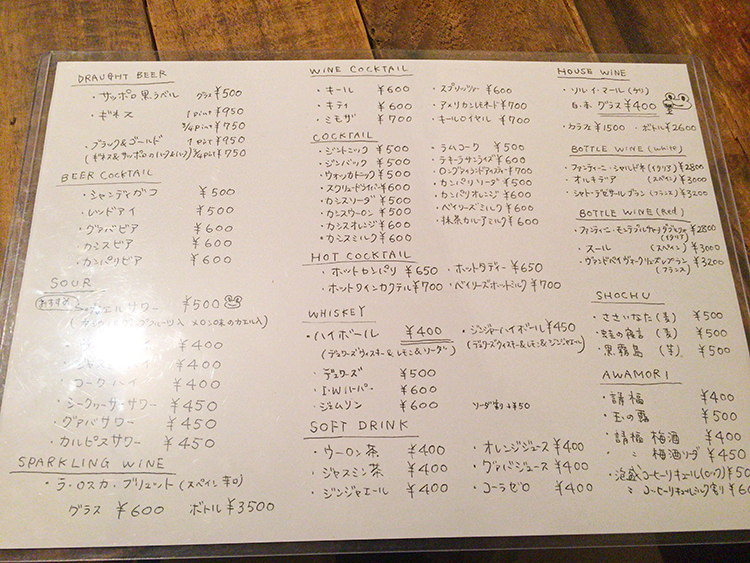 DRAUGHT BEER
・サッポロ黒ラベル グラス ¥500
・ギネス 1 pint ¥950
3/4 pint ¥750
・ブラック&ゴールド 1 pint ¥950
(ギネス&サッポロのハーフ&ハーフ) 3/4 pint ¥750
BEER COCKTAIL
・シャンディガフ ¥500
・レッドアイ ¥500
・グァバビア ¥600
・カシスビア ¥600
・カンパリビア ¥600
SOUR
おすすめ ジェルサワー ¥500
メロン味のカエル入)
¥400
¥400
・コークハイ ¥400
・シークヮーサーサワー ¥450
・グァバサワー ¥450
・カルピスサワー ¥450
SPARKLING WINE
・ラ・ロスカ・ブリュット (スペイン 辛口)
グラス ¥600 ボトル ¥3500
WINE COCKTAIL
・キール ¥600 ・スプリッツァー ¥600
・キティ ¥600 ・アメリカンレモネード ¥700
・ミモザ ¥700 ・キールロイヤル ¥700
COCKTAIL
・ジントニック ¥500 ・ラムコーク ¥500
・ジンバック ¥500 ・テキーラサンライズ ¥600
・ウォッカトニック ¥500 ・ロングアイランドアイスティー ¥700
・スクリュードライバー ¥600 ・カンパリソーダ ¥500
・カシスソーダ ¥500 ・カンパリオレンジ ¥600
・カシスウーロン ¥500 ・ベイリーズミルク ¥600
・カシスオレンジ ¥600 ・抹茶カルーアミルク ¥600
・カシスミルク ¥600
HOT COCKTAIL
・ホットカンパリ ¥650 ・ホットタディー ¥650
・ホットワインカクテル ¥700 ・ベイリーズホットミルク ¥700
WHISKEY
・ハイボール ¥400 ・ジンジャーハイボール ¥450
(デュワーズウィスキー&レモン&ソーダ) (デュワーズウィスキー&レモン&ジンジャエール)
・デュワーズ ¥500
・I.W.ハーパー ¥600
・ジェムソン ¥600 ソーダ割り+¥50
SOFT DRINK
・ウーロン茶 ¥400 ・オレンジジュース ¥400
・ジャスミン茶 ¥400 ・グァバジュース ¥400
・ジンジャエール ¥400 ・コーラゼロ ¥400
HOUSE WINE
・ソル・イ・マール (チリ)
白・赤 グラス ¥400
・カラフェ ¥1500 ・ボトル ¥2600
BOTTLE WINE (White)
・ファンティーニ・シャルドネ (イタリア) ¥2800
・オルキデア (スペイン) ¥3000
・シャトー・デサール ブラン (フランス) ¥3200
BOTTLE WINE (Red)
・ファンティーニ・モンテプルチャーノダブルッツォ ¥2800
(イタリア)
・スール (スペイン) ¥3000
¥3200
(フランス)
SHOCHU
(麦) ¥500
(麦) ¥500
・黒霧島 (芋) ¥500
AWAMORI
・請福 ¥400
・玉の露 ¥500
・請福 梅酒 ¥400
・〃 梅酒ソダ ¥450
・泡盛コーヒーリキュール(ロック) ¥50
〃 コーヒーリキュールミルク割り ¥60